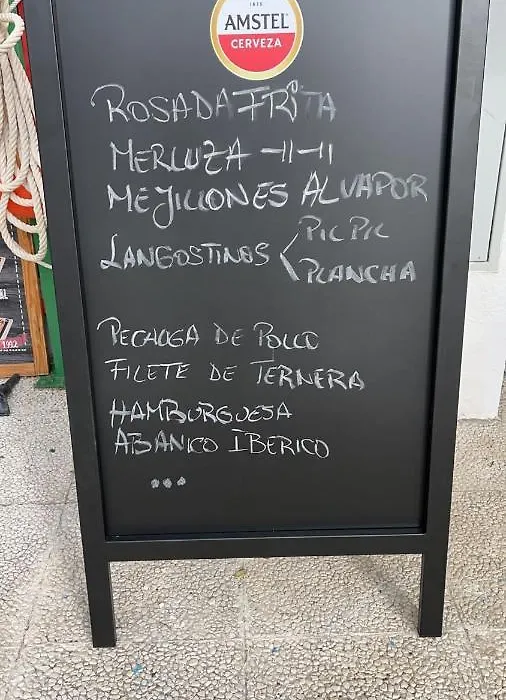 AMSTEL
CERVEZA
ROSADA FRITA
MERLUZA -11-11
MEJILLONES AL VAPOR
LANGOSTINOS < PIL PIL
PLANCHA
PECHUGA DE POLLO
FILETE DE TERNERA
HAMBURGUESA
ABANICO IBERICO
...
1992